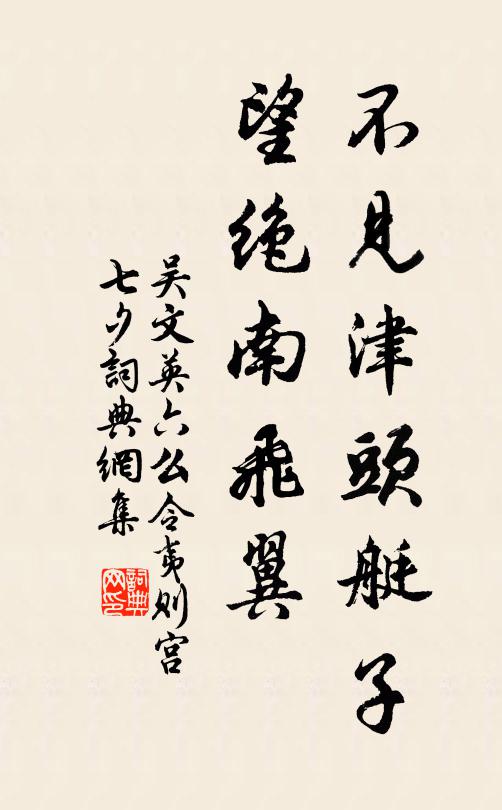 不見津頭艇子
望絶南飛翼
吴文英六么令夷则宫
七夕詞典網集
詞典网印